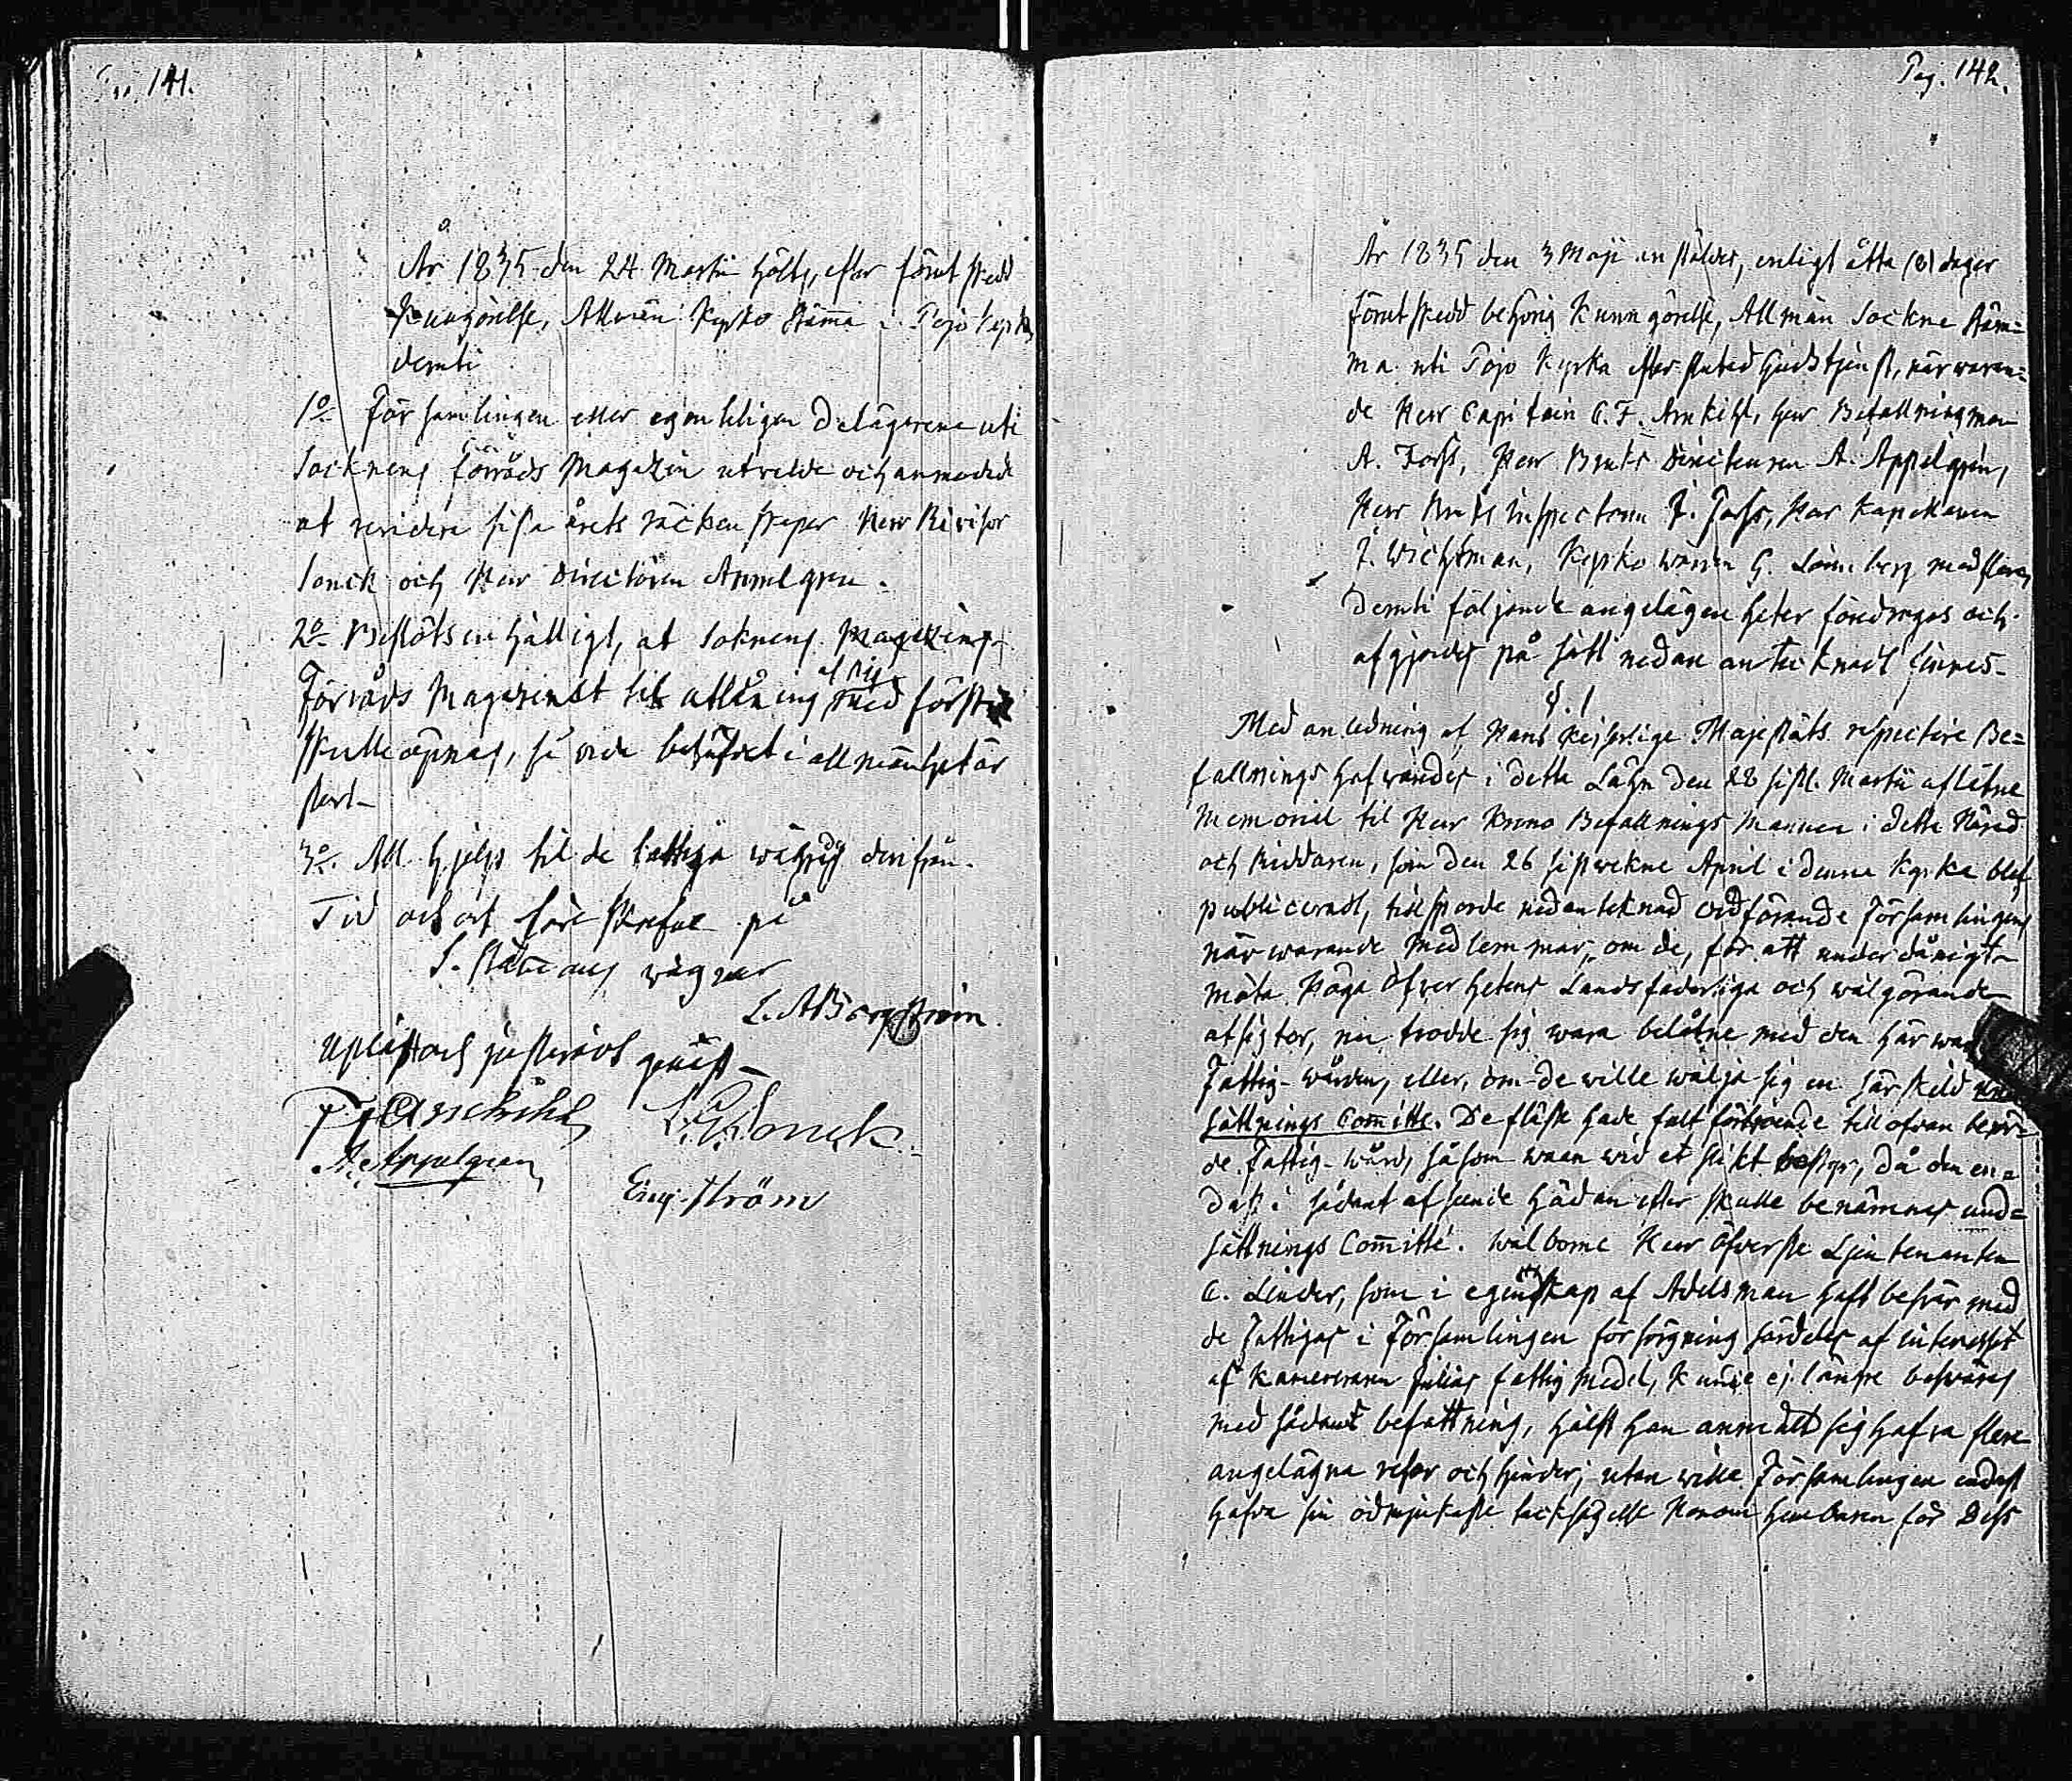 Pag. 141.
År 1835 den 24 Martii hölts, efter förut skedd
Kungörelse, Allmän Kyrko Stämma i Pojo Kyrka,
deruti
1o Församlingen eller egenteligen Delägerene uti
Socknens förråds Magazin utvalde och anmodade
at revidera sista årets räckenskaper Herr Revisor
Lonck och Herr Directören Appelgren.
2o Beslöts enhälligt, at Soknens Magazins
Förråds Magasinet til utlåning med första
at sig
skulle öpnas, så vida behofvet i allmänhet är
stort
3o. All hjelp til de fattiga
Tid och ort föreskrefne på
S. Stämans wägnar
L. A Bergström.
Upläst och justeradt
Arnkihl Lonck
A. Appelgren
Engström
Pag. 142.
År 1835 den 3 Maji anstäldes, enligt åtta (8) dagar
förut skedd behörig Kunngörelse, Allmän Sockne Stäm=
ma uti Pojo Kyrka efter slutad Gudstjenst, närwaran=
de Herr Capitain C. F. Arnkihl, Herr Befallningsman
A. Forss, Herr Bruks Directeuren A. Appelgren,
Herr Bruks Inspectoren F. Forss, Herr Kapellanen
F. Wichtman, Kyrkowärden G. Lönnberg med flera,
Deruti följande angelägenheter föredrogos och
afgjordes på sätt nedan antecknadt finnes.
§. 1
Med anledning af Hans Kejserlige Majestäts respective Be=
fallningshafwandes i detta Lähn den 28 sistl. Martii aflåtne
Memorial til Herr Krono Befallnings Mannen i detta Härad
och Riddaren, som den 26 sistwekne April i denna Kyrka blef
publiceradt, tillsporde nedanteknad ordförande Församlingens
närwarande Medlemmar, om de, för att underdånigt
möta Höga Öfverhetens Landsfaderliga och wälgörande
afsigter, nu trodde sig wara belåtne med den här
Fattig-wården, eller, om de wille wälja sig en särskild
sättnings Committé. De fläste hade fult förtroende till ofvan berör=
de Fattig-wård, såsom waan wid et slikt bestyr, då den en=
dast i sådant afseende hädanefter skulle benämnas und=
sättnings Committé. Wälborne Herr Öfverste Ljeutenanten
C. Linder, som i egenskap af Adelsman haft beswär med
de Fattigas i Församlingen försörgning särdeles af interesset
af Kamereraren Julias fattigmedel, kunde ej längre beswäras
med sådant befattning, hälst han anmält sig hafva flere
angelägna resor och hinder; utan wille Församlingen endast
hafva sin ödmjukaste tacksägelse Honom hembaren för Dess